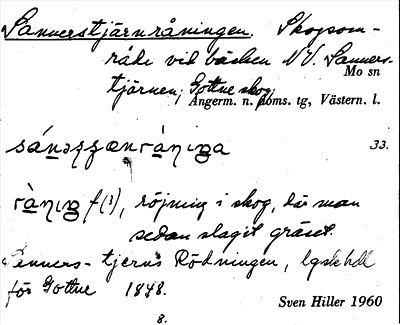 Sannerstjärnråningen. Skogsom-
råde vid bäcken NV. Sanners-
Mo sn
tjärnen; Gottne skog.
Ångerm. n. doms. tg, Västern. l.
33.
ròṇiŋ f(³), röjning i skog, där man
sedan slagit gräset.
Sanners-tjerns Rödningen,
för Gottne 1848.
Sven Hiller 1960
8.